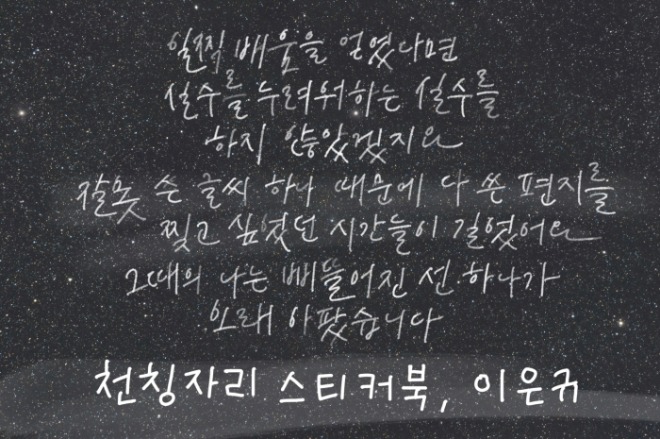 일찍 배움을 얻었다면
실수를 두려워하는 실수를
하지 않았겠지요
잘못 쓴 글씨 하나 때문에 다 쓴 편지를
찢고 싶었던 시간들이 길었어요
그때의 나는 삐뚤어진 선 하나가
오래 아팠습니다
천칭자리 스티커북, 이은규